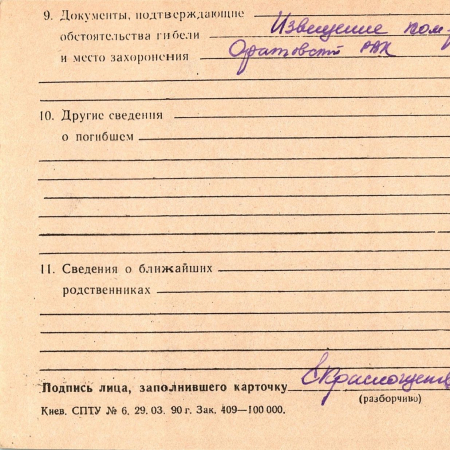 9. Документы, подтверждающие
обстоятельства гибели Извещение пом-
и место захоронения Оратовский РВК
10. Другие сведения
о погибшем
11. Сведения о ближайших
родственниках
Подпись лица, заполнившего карточку
(разборчиво)
Киев. СПТУ № 6. 29. 03. 90 г. Зак. 409—100 000.